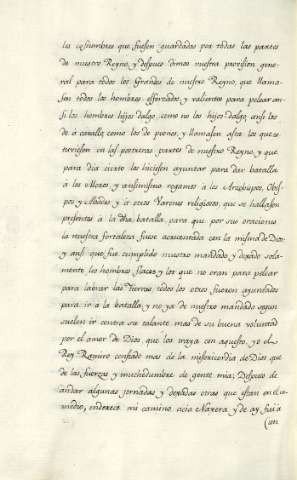 las costumbres que fuesen guardadas por todas las partes
de nuestro Reyno, y despues dimos nuestra provision gene
ral para todos los Grandes de nuestro Reyno, que llama
sen todos los hombres esforzados, y valientes para pelear an
si los hombres hijos dalgo, como no los hijos dalgo, ansi los
de á cavallo, como los de piones, y llamasen asta los que es
tuviesen en las postreras partes de nuestro Reyno, y que
para dia cierto los hiciesen ayuntar para dar batalla
á los Moros, y ansimismo rogamos á los Arzobispos, Obis
pos, y Abades, y á otros Varones religiosos, que se hallasen
presentes á la dha batalla, para que por sus oraciones
la nuestra fortaleza fuese acrecentada con la misma de Dios,
y ansi que fue cumplido nuestro mandado, y dexado sola
mente los hombres flacos, y los que no eran para pelear
para labrar las Tierras, todos los otros fueron ayuntados
para ir á la batalla, y no ya de nuestro mandado segun
suelen ir contra su talante, mas de su buena voluntad
por el amor de Dios que los traya con aquesto, yo el
Rey Ramiro confiado mas de la misericordia de Dios que
de las fuerzas, y muchedumbre de gente mia; Despues de
andar algunas jornadas, y dexadas otras que estan en el ca
medio, enderecé mi camino acia Naxera, y de ay fui á